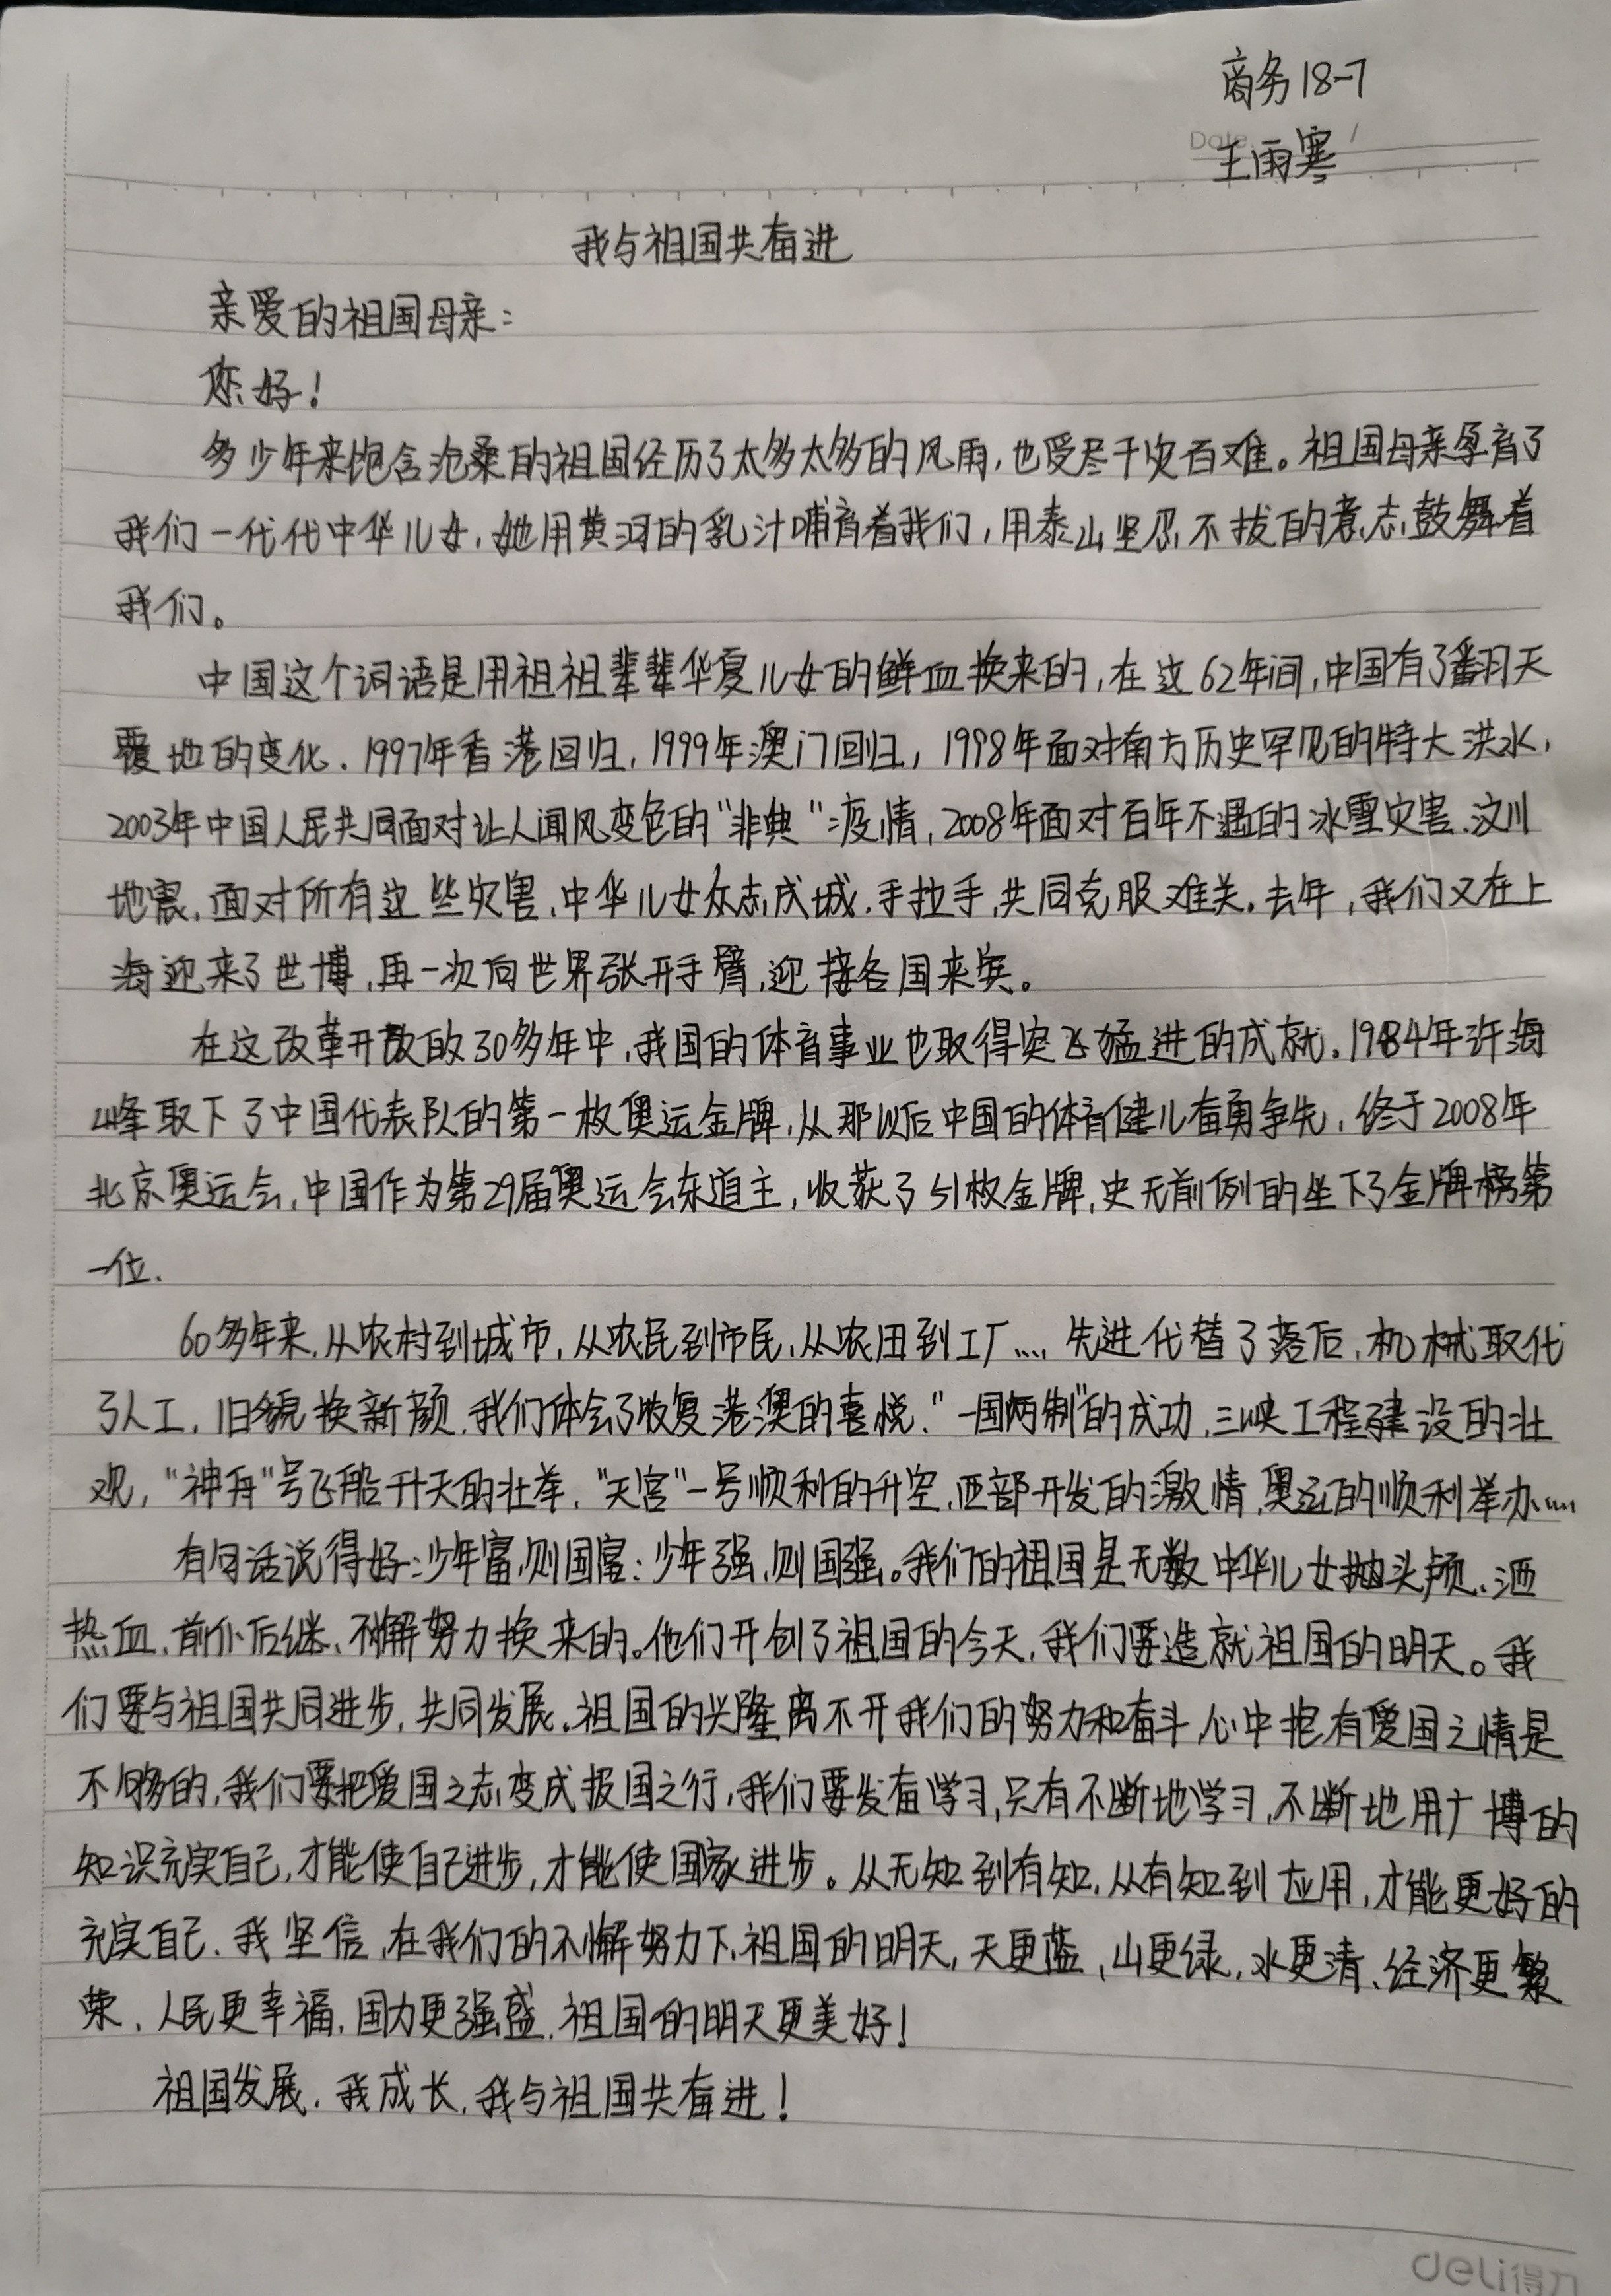 商务18-7
Date /
王雨寒
我与祖国共奋进
亲爱的祖国母亲:
您好!
多少年来饱含沧桑的祖国经历了太多太多的风雨,也受尽千灾百难。祖国母亲孕育了
我们一代代中华儿女,她用黄河的乳汁哺育着我们,用泰山坚忍不拔的意志鼓舞着
我们。
中国这个词语是用祖祖辈辈华夏儿女的鲜血换来的,在这62年间,中国有了翻天
覆地的变化.1997年香港回归,1999年澳门回归,1998年面对南方历史罕见的特大洪水,
2003年中国人民共同面对让人闻风变色的"非典"疫情,2008年面对百年不遇的冰雪灾害、汶川
地震,面对所有这些灾害,中华儿女众志成城,手拉手,共同克服难关.去年,我们又在上
海迎来了世博,再一次向世界张开手臂,迎接各国来宾。
在这改革开放的30多年中,我国的体育事业也取得突飞猛进的成就。1984年许海
峰取下了中国代表队的第一枚奥运金牌,从那以后中国的体育健儿奋勇争先,终于2008年
北京奥运会,中国作为第29届奥运会东道主,收获了51枚金牌,史无前例的坐下了金牌榜第
一位.
60多年来,从农村到城市,从农民到市民,从农田到工厂....先进代替了落后,机械取代
了人工,旧貌换新颜.我们体会了收复港澳的喜悦,"一国两制"的成功,三峡工程建设的壮
观,"神舟"号飞船升天的壮举,"天宫"一号顺利的升空,西部开发的激情,奥运的顺利举办....
有句话说得好:少年富,则国富;少年强,则国强。我们的祖国是无数中华儿女抛头颅、洒
热血、前仆后继、不懈努力换来的。他们开创了祖国的今天,我们要造就祖国的明天。我
们要与祖国共同进步,共同发展.祖国的兴隆离不开我们的努力和奋斗,心中抱有爱国之情是
不够的,我们要把爱国之志变成报国之行,我们要发奋学习,只有不断地学习,不断地用广博的
知识充实自己,才能使自己进步,才能使国家进步。从无知到有知,从有知到应用,才能更好的
充实自己.我坚信,在我们的不懈努力下,祖国的明天,天更蓝,山更绿,水更清、经济更繁
荣、人民更幸福,国力更强盛.祖国的明天更美好!
祖国发展.我成长,我与祖国共奋进!
deli得力